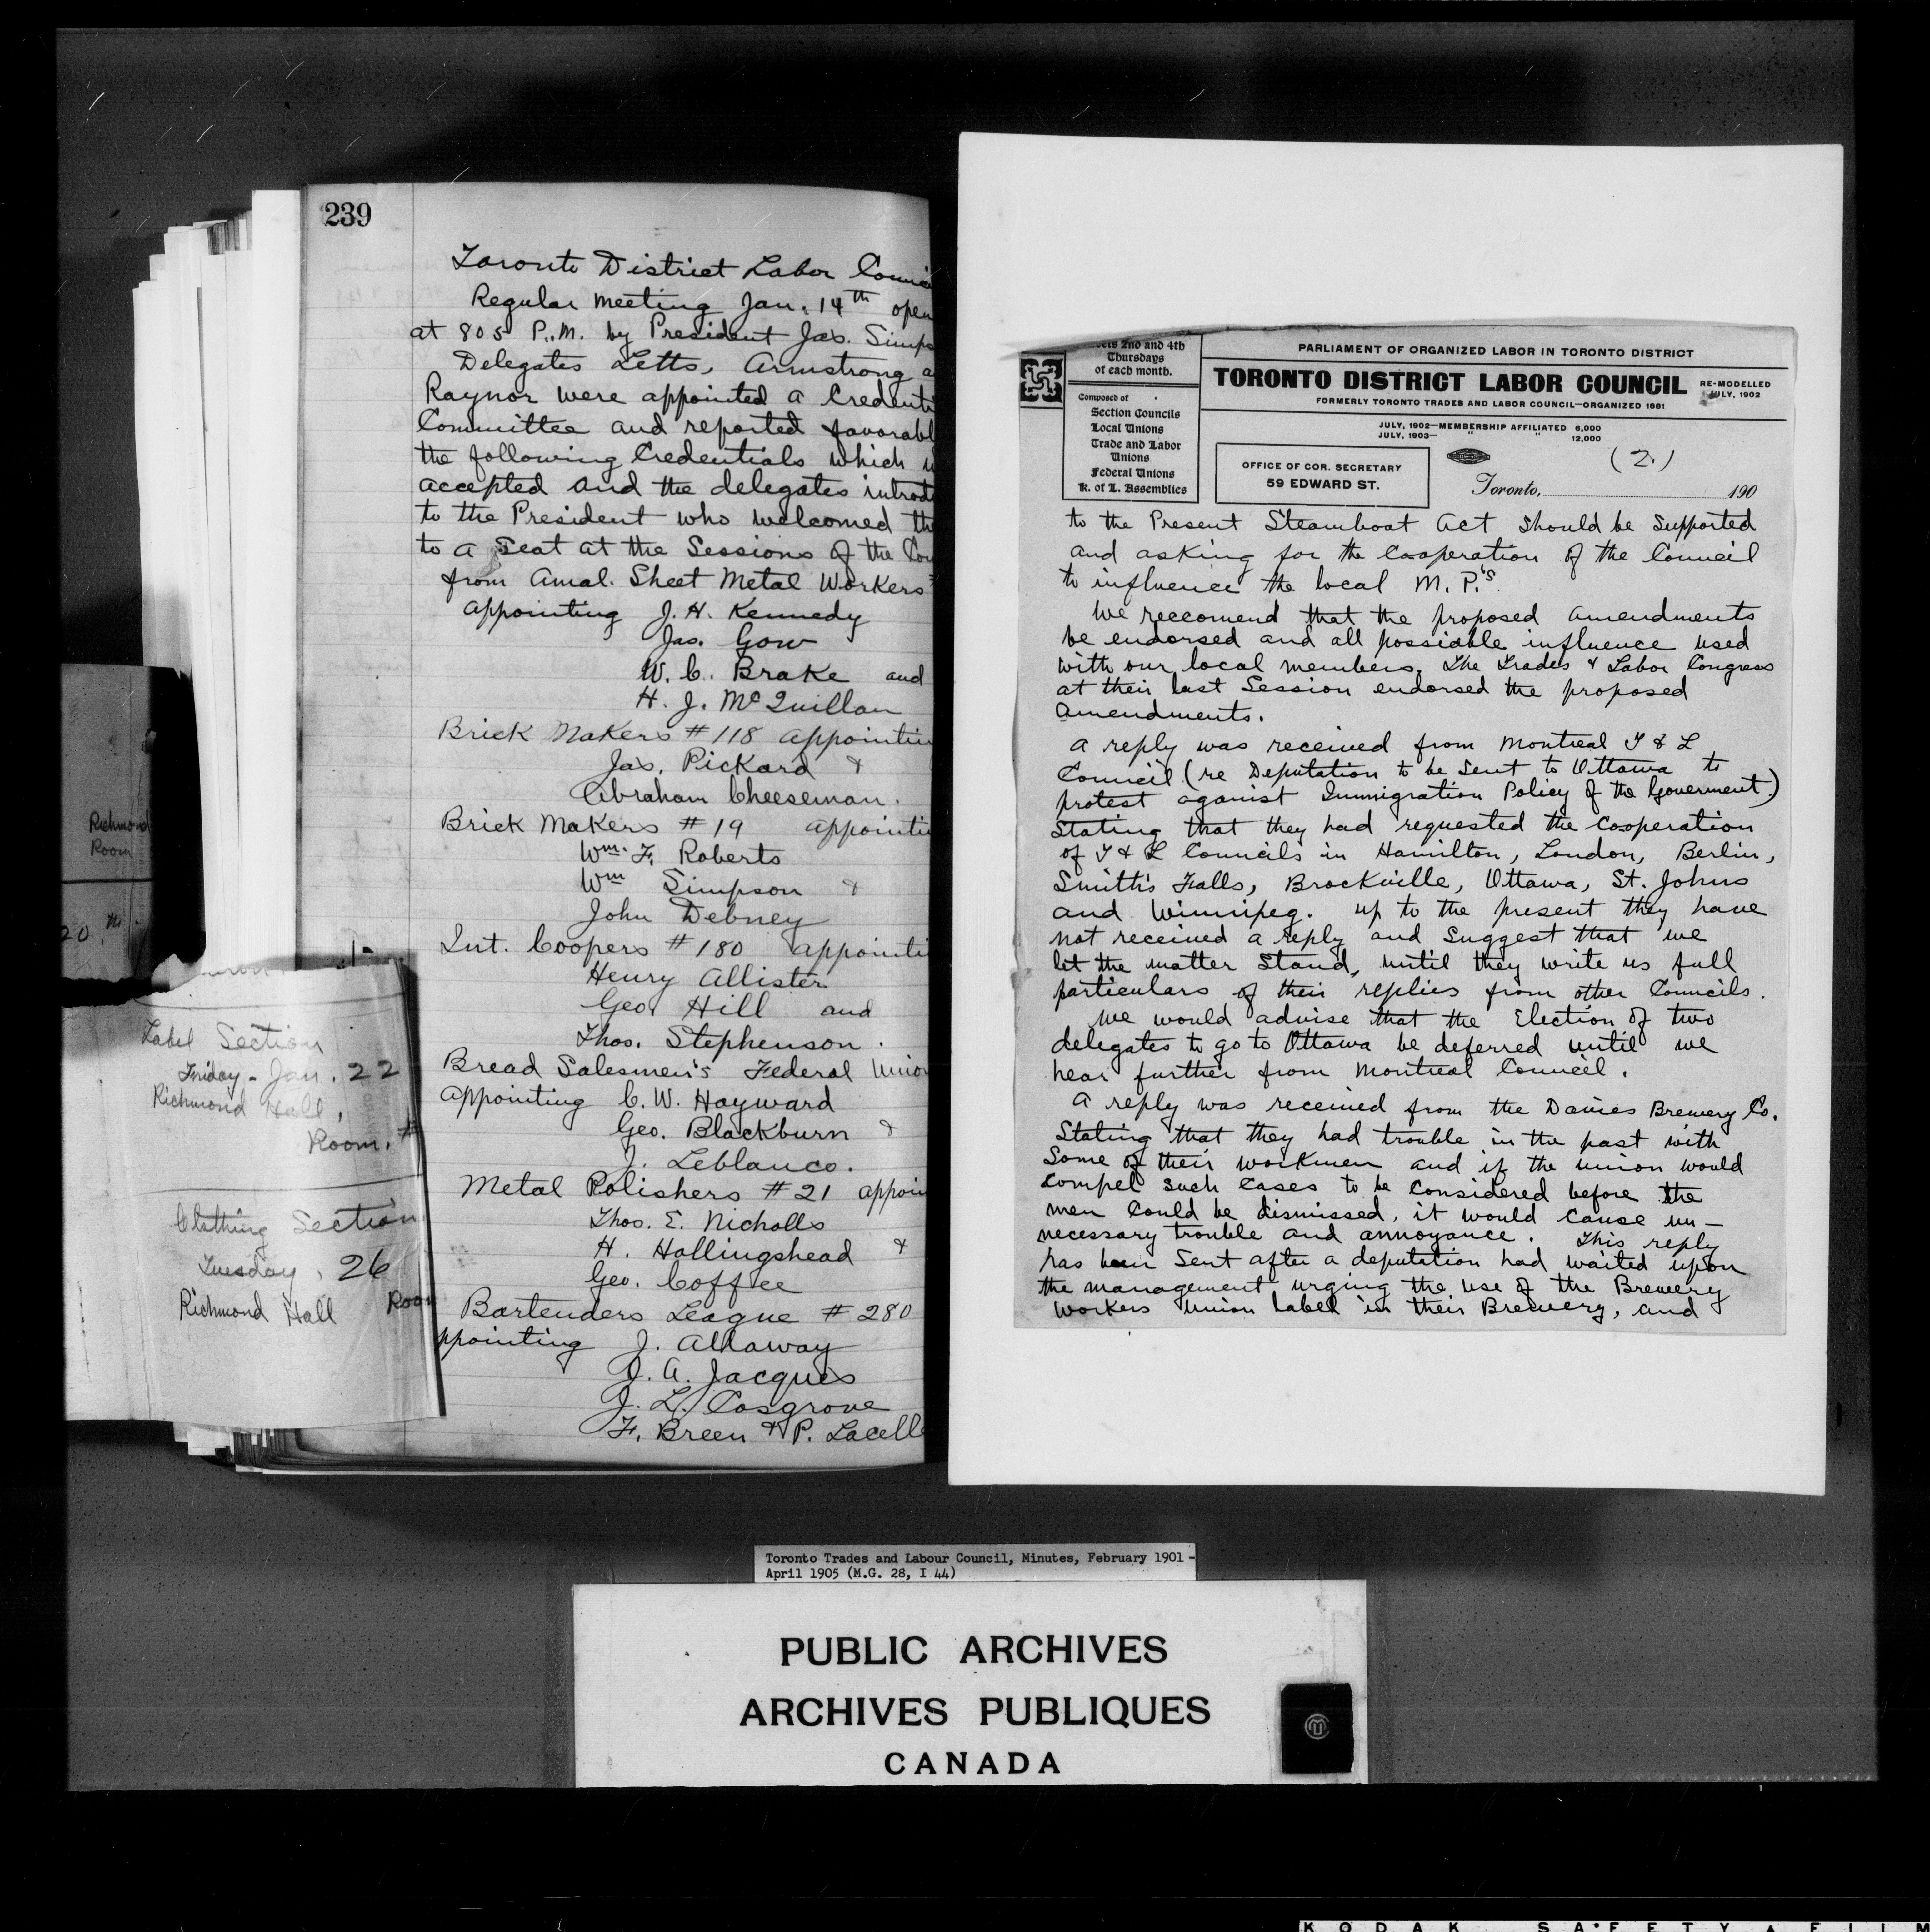 239
Toronto District Labor
Regular Meeting Jan. 14th open
at 805 P.M. by President Jas. Simps
Delegates Letts, Armstrong a
Raynor were appointed a Credenti
Committee and reported favorabl
the following Credentials which w
accepted and the delegates introd
to the President who welcomed th
to a Seat at the Sessions of the Cou
from Amal. Sheet Metal Workers
appointing J. H. Kennedy
Jas. Gow
W. C. Brake and
H. J. McQuillan
Brick Makers #118 appointin
Jas. Pickard &
Abraham Cheeseman.
Brick Makers #19 appointi
Wm. F. Roberts
Wm Simpson &
John Debney
Int. Coopers #180 appointi
Henry Allister
Geo Hill and
Thos. Stephenson.
Bread Salesmen's Federal Union
appointing C. W. Hayward
Geo. Blackburn &
J. Leblanco.
Metal Polishers #21 appoin
Thos. E. Nicholls
H. Hollingshead &
Geo. Coffee
Bartenders League #280
ppointing J. Allaway
J. A. Jacques
J. L. Cosgrove
F. Breen & P. Lacell
Richmond
Room
20th
Label Section
Friday - Jan. 22
Richmond Hall,
Room. #
Clothing Section
Tuesday, 26
Richmond Hall Roo
2nd and 4th
Thursdays
of each month.
Composed of
Section Councils
Local Unions
Trade and Labor
Unions
Federal Unions
K. of L. Assemblies
PARLIAMENT OF ORGANIZED LABOR IN TORONTO DISTRICT
TORONTO DISTRICT LABOR COUNCIL
RE-MODELLED
JULY, 1902
FORMERLY TORONTO TRADES AND LABOR COUNCIL—ORGANIZED 1881
JULY, 1902—MEMBERSHIP AFFILIATED 6,000
JULY, 1903— " " 12,000
OFFICE OF COR. SECRETARY
59 EDWARD ST.
(2.)
Toronto, 190
to the Present Steamboat Act should be Supported
and asking for the Cooperation of the Council
to influence the local M. P.'s.
We reccomend that the proposed amendments
be endorsed and all possiable influence used
with our local members. The Trades & Labor Congress
at their last Session endorsed the proposed
amendments.
A reply was received from Montreal T & L
Council (re Deputation to be Sent to Ottawa to
protest against Immigration Policy of the Goverment.)
Stating that they had requested the Cooperation
of T & L Councils in Hamilton, London, Berlin,
Smith's Falls, Brockville, Ottawa, St. Johns
and Winnipeg. up to the present they have
not received a reply and Suggest that we
let the matter Stand, until they write us full
particulars of their replies from other Councils.
We would advise that the Election of two
delegates to go to Ottawa be deferred until we
hear further from Montreal Council.
A reply was received from the Davies Brewery Co.
Stating that they had trouble in the past with
Some of their workmen and if the union would
compel such cases to be considered before the
men could be dismissed, it would cause un-
necessary trouble and annoyance. This reply
has been Sent after a deputation had waited upon
the management urging the use of the Brewery
Workers Union Label in their Brewery, and
Toronto Trades and Labour Council, Minutes, February 1901 -
April 1905 (M.G. 28, I 44)
PUBLIC ARCHIVES
ARCHIVES PUBLIQUES
CANADA
KODAK SAFETY FILM